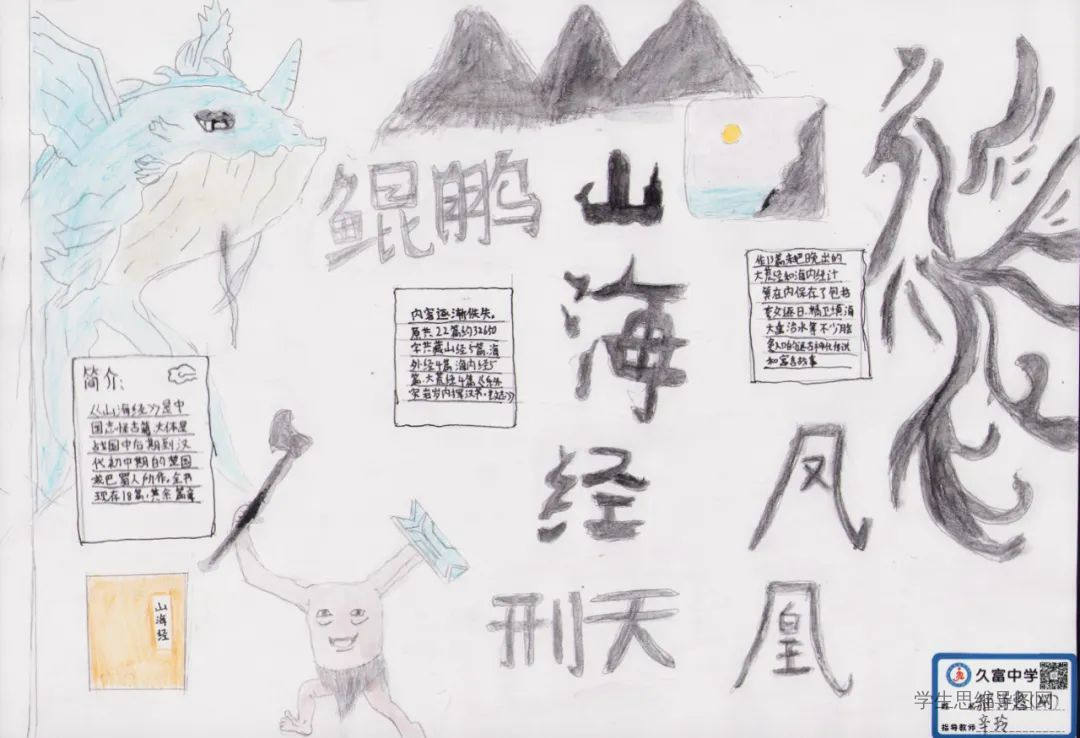 鲲鹏
山
海
经
简介:
《山海经》是中
国志怪古籍,大体是
战国中后期到汉
代初中期的楚国
或巴蜀人所作,全书
现存18篇,其余篇章
内容逐渐佚失。
原共22篇约32650
字共藏山经5篇、海
外经4篇、海内经5
篇、大荒经4篇
大荒经和海内经计
算在内保存了包括
夸父逐日、精卫填海
大禹治水等不少脍
炙人口的远古神话传说
和寓言故事
凤
凰
刑天
山海经
久富中学
学生思维导图网
指导教师
辛玲